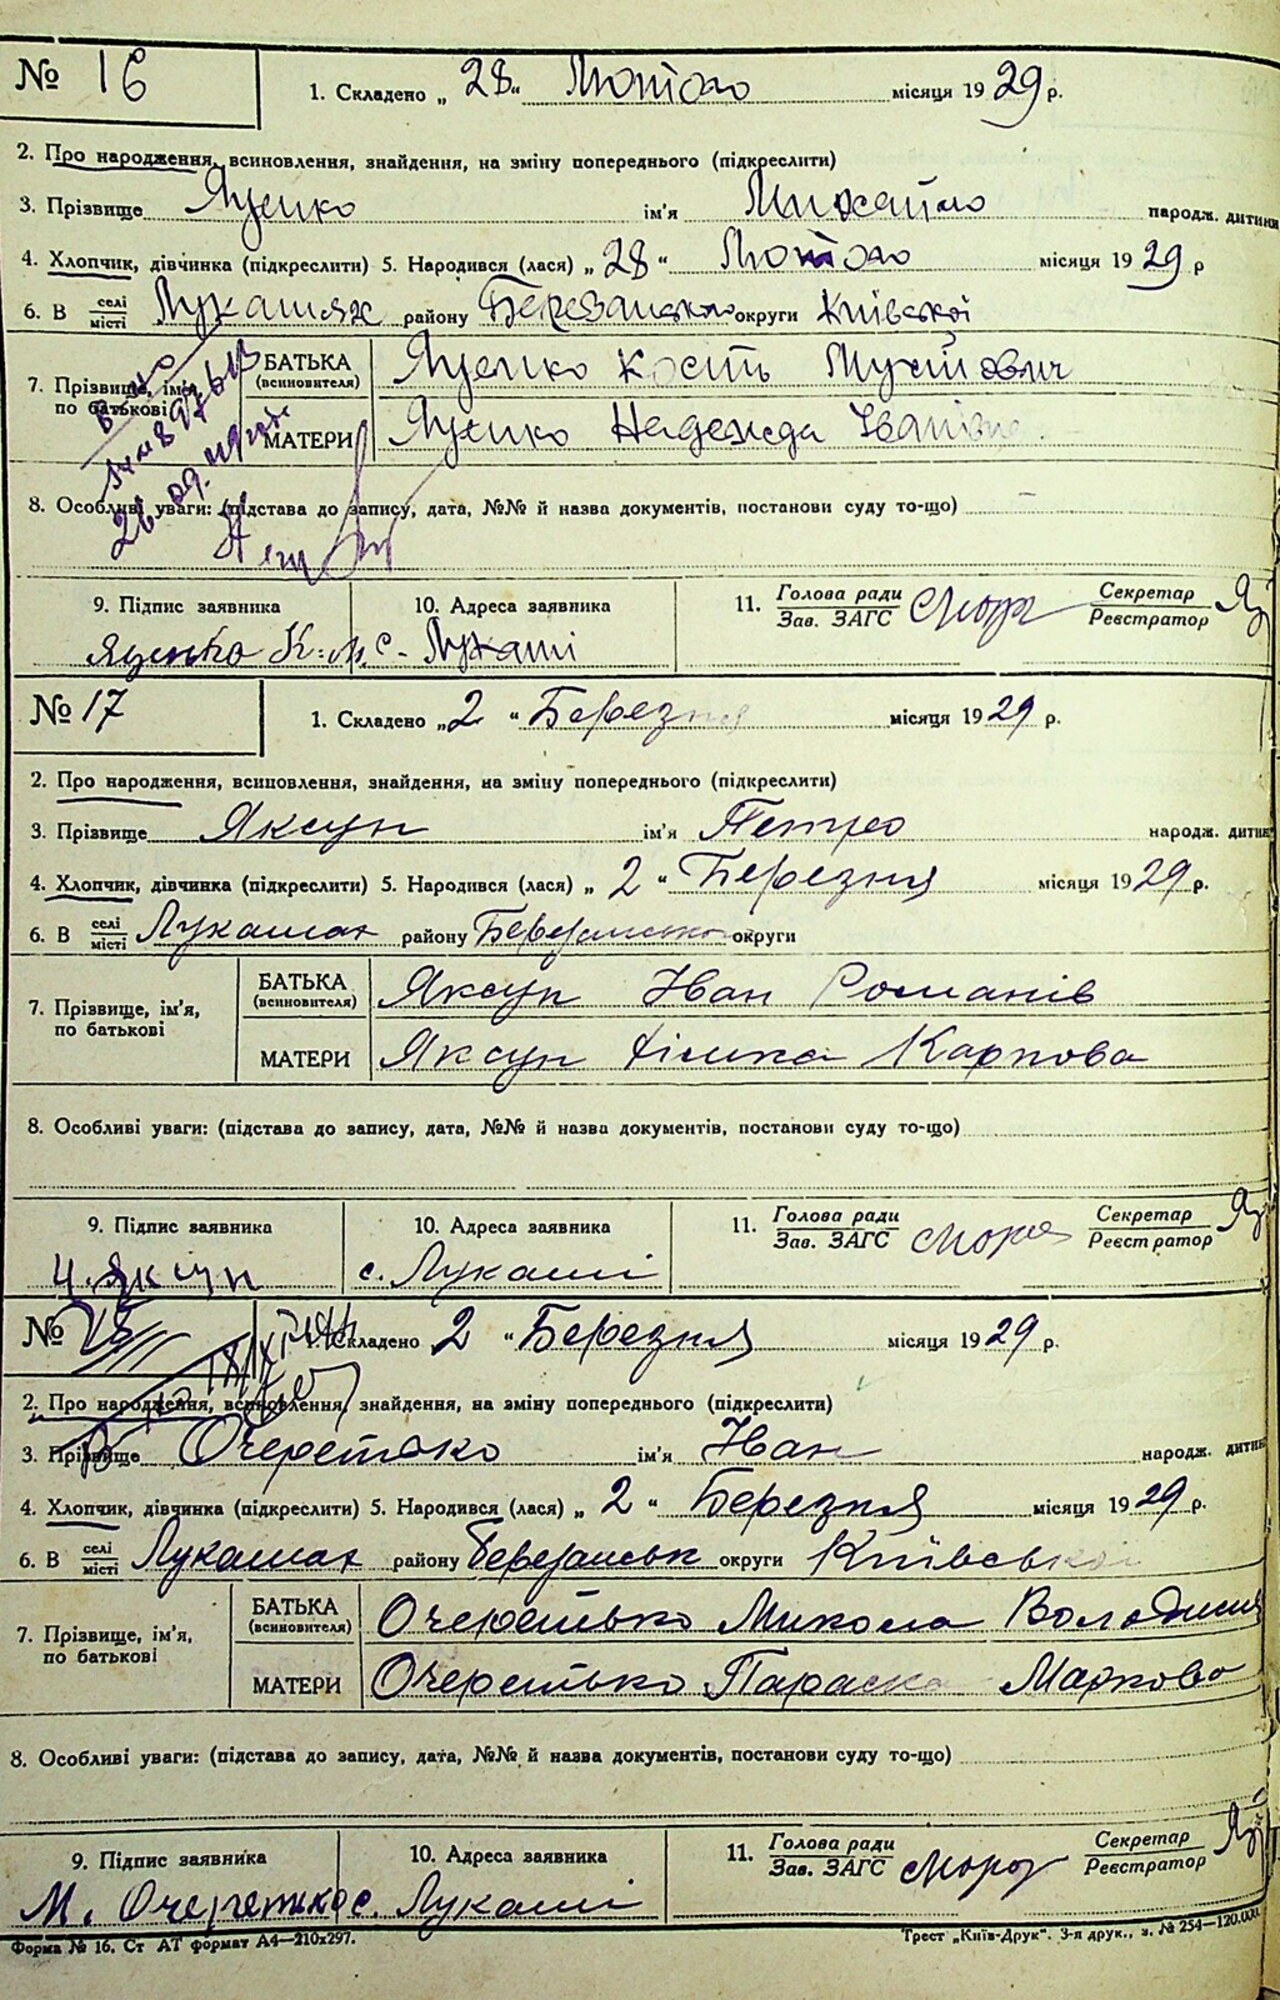 № 16
1. Складено „ 28 “ Лютого місяця 1929 р.
2. Про народження, всиновлення, знайдення, на зміну попереднього (підкреслити)
3. Прізвище Яценко ім'я Михайло народж. дитини
4. Хлопчик, дівчинка (підкреслити) 5. Народився (лася) „ 28 “ Лютого місяця 1929 р
6. В селі/місті Лукашях району Березанського округи Київської
7. Прізвище, ім'я, по батькові
БАТЬКА (всиновителя) Яценко Кость Мусійович
МАТЕРИ Яценко Надежда Іванівна
8. Особливі уваги: (підстава до запису, дата, №№ й назва документів, постанови суду то-що)
9. Підпис заявника 10. Адреса заявника 11. Голова ради/Зав. ЗАГС Секретар/Реєстратор
Яценко К. М. с. Лукаші
№ 17
1. Складено „ 2 “ Березня місяця 1929 р.
2. Про народження, всиновлення, знайдення, на зміну попереднього (підкреслити)
3. Прізвище Яксун ім'я Петро народж. дитини
4. Хлопчик, дівчинка (підкреслити) 5. Народився (лася) „ 2 “ Березня місяця 1929 р.
6. В селі/місті Лукашах району округи
7. Прізвище, ім'я, по батькові
БАТЬКА (всиновителя) Яксун Іван Романів
МАТЕРИ Яксун Карпова
8. Особливі уваги: (підстава до запису, дата, №№ й назва документів, постанови суду то-що)
9. Підпис заявника 10. Адреса заявника 11. Голова ради/Зав. ЗАГС Секретар/Реєстратор
Яксун с. Лукаші
№ 18
1. Складено 2 “ Березня місяця 1929 р.
2. Про народження, всиновлення, знайдення, на зміну попереднього (підкреслити)
3. Прізвище Очеретько ім'я Іван народж. дитини
4. Хлопчик, дівчинка (підкреслити) 5. Народився (лася) „ 2 “ Березня місяця 1929 р.
6. В селі/місті Лукашах району Березанськ округи Київської
7. Прізвище, ім'я, по батькові
БАТЬКА (всиновителя) Очеретько Микола
МАТЕРИ Очеретько Параска Маркова
8. Особливі уваги: (підстава до запису, дата, №№ й назва документів, постанови суду то-що)
9. Підпис заявника 10. Адреса заявника 11. Голова ради/Зав. ЗАГС Секретар/Реєстратор
М. Очеретько с. Лукаші
Форма № 16. Ст АТ формат А4—210x297. Трест „Київ-Друк“. 3-я друк., з. № 254—120.000